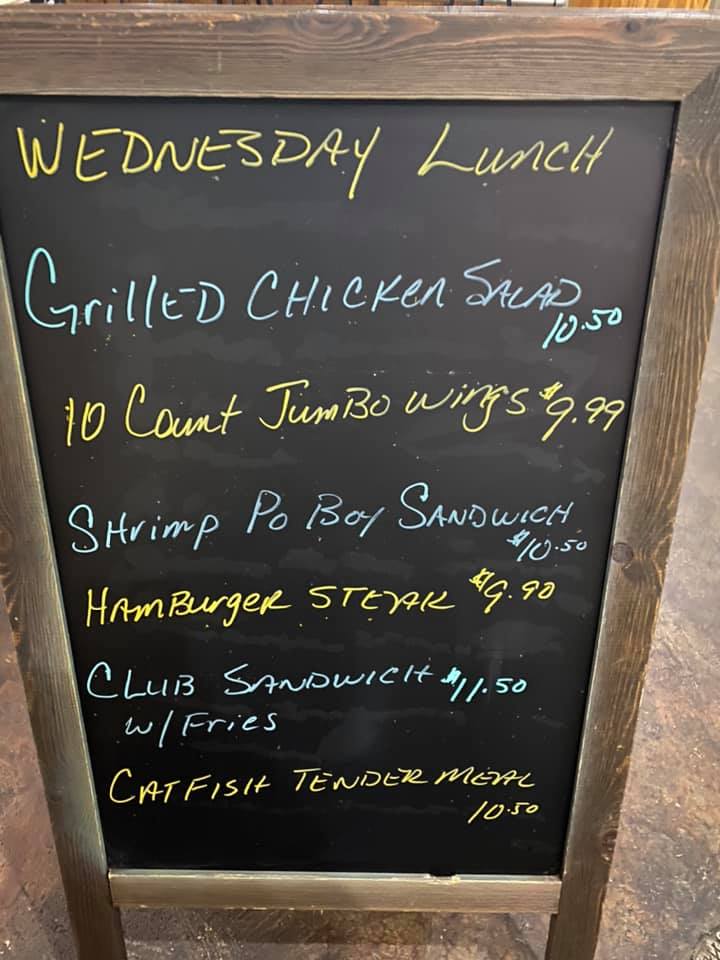 WEDNESDAY LUNCH
GrillED CHICKen SALAD
10.50
10 Count JumBo wings $9.99
SHrimp Po Boy SANDWICH
$10.50
HAmBurgER STEAK $9.90
CLUB SANDWICH $11.50
w/ Fries
CATFISH TENDER MEAL
10.50